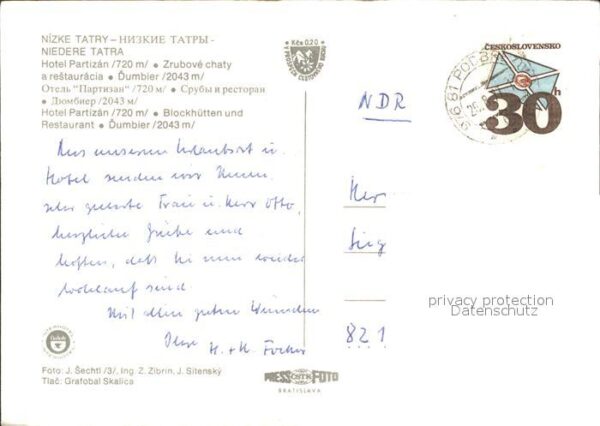 NÍZKE TATRY – НИЗКИЕ ТАТРЫ -
NIEDERE TATRA
Hotel Partizán /720 m/ • Zrubové chaty
a reštaurácia • Ďumbier /2043 m/
Отель "Партизан" /720 м/ • Срубы и ресторан
• Дюмбиер /2043 м/
Hotel Partizán /720 m/ • Blockhütten und
Restaurant • Ďumbier /2043 m/
Kčs 0,20
ČESKOSLOVENSKO
30h
976 81 PODBR
NDR
Aus unserem Urlaubsort u.
Hotel senden wir Ihnen
sehr geehrte Frau u. Herr Otto,
herzliche Grüße und
hoffen, daß Sie nun wieder
wohlauf sind
Mit allen guten Wünschen
Ihre H. + H.
Her
Sieg
821
privacy protection
Datenschutz
Foto: J. Šechtl /3/, Ing. Z. Zibrin, J. Sitenský
Tlač: Grafobal Skalica
PRESSFOTO
ČSTK
BRATISLAVA